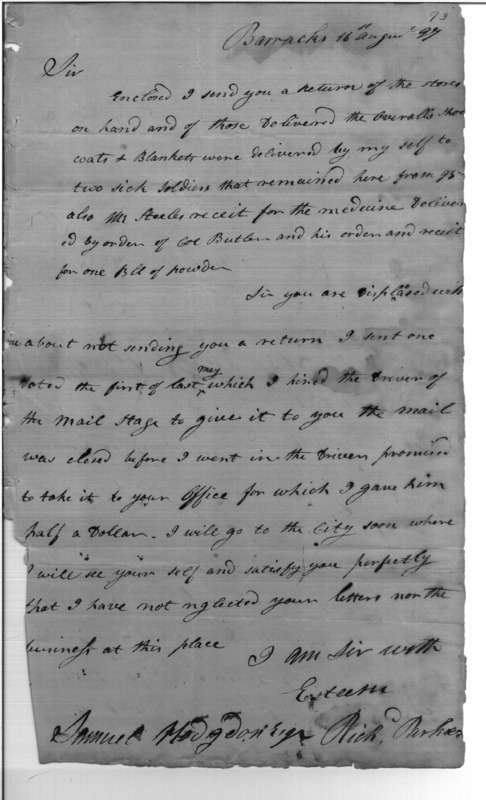 93
Barracks 16th August 97
Sir
Enclosed I send you a Return of the stores
on hand and of those Delivered the Overalls Shoes
coats & Blankets were delivered by my self to
two sick Soldiers that remained here from 95
also Mr Steeles receit for the medicine Deliver
ed by order of Col Butler and his order and receit
for one Bll of powder
Sir you are Displeased with
me about not sending you a return I sent one
Dated the first of last may which I hired the Driver of
the Mail Stage to give it to you the mail
was closed before I went in the Driver promised
to take it to your Office for which I gave him
half a Dollar. I will go to the City soon where
I will see your self and satisfy you perfectly
that I have not nglected your letters nor the
business at this place
I am Sir with
Esteem
Samuel Hodgdon Esqr Richd Parker